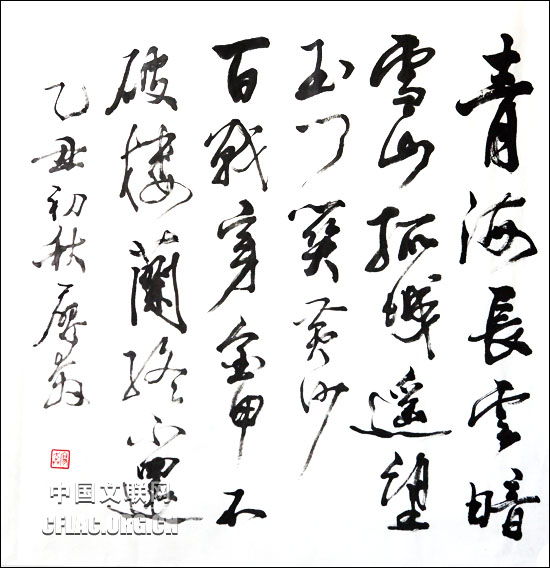 青海長雲暗
雪山孤城遥望
玉门関黄沙
百戰穿金甲不
破樓蘭終不還
乙丑初秋
中国文联网
CFLAC.ORG.CN